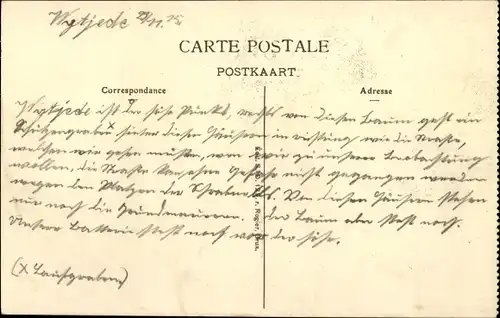 Wytjede 29/11. 15
CARTE POSTALE
POSTKAART
Correspondance
Adresse
Wytjede ist der höchste Punkt, rechts von diesem Baum geht ein
Schützengraben hinter diesen Häusern in richtung wie die Straße,
welchen wir gehen mußten, wenn wir zu unserer Beobachtung
wollen, die Straße kann ohne Gefahr nicht gegangen werden
wegen den Platzen der Schrabnells. Von diesen Häusern stehen
nur noch die Grundmauern. Der Baum aber steht noch.
Unsere Batterie steht noch vor der Höhe.
(X Laufgraben)